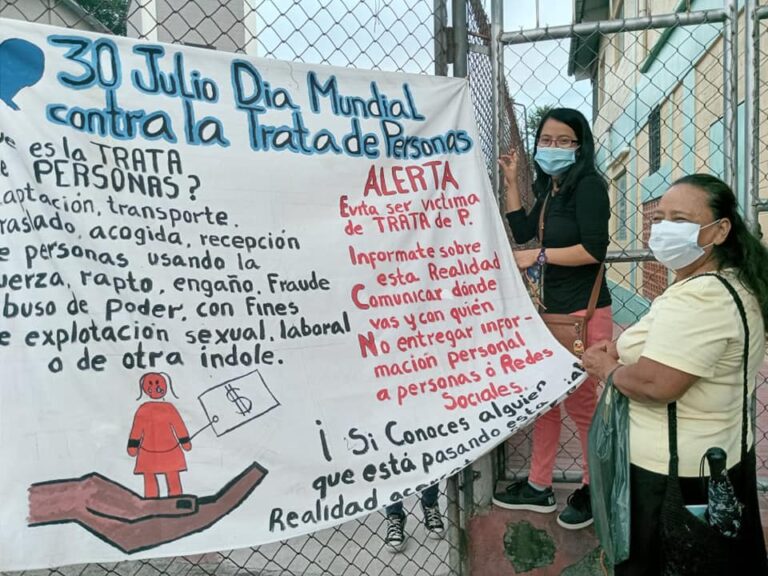 30 Julio Dia Mundial
contra la Trata de Personas
es la TRATA
PERSONAS?
transporte,
acogida, recepción
personas usando la
rapto, engaño, Fraude
de Poder, con Fines
explotación sexual, laboral
o de otra índole.
$
ALERTA
Evita ser victima
de TRATA de P.
Informate sobre
esta Realidad
Comunicar dónde
vas y con quién
No entregar infor-
mación personal
a personas ó Redes
Sociales.
¡Si Conoces alguien
que está pasando esta
Realidad